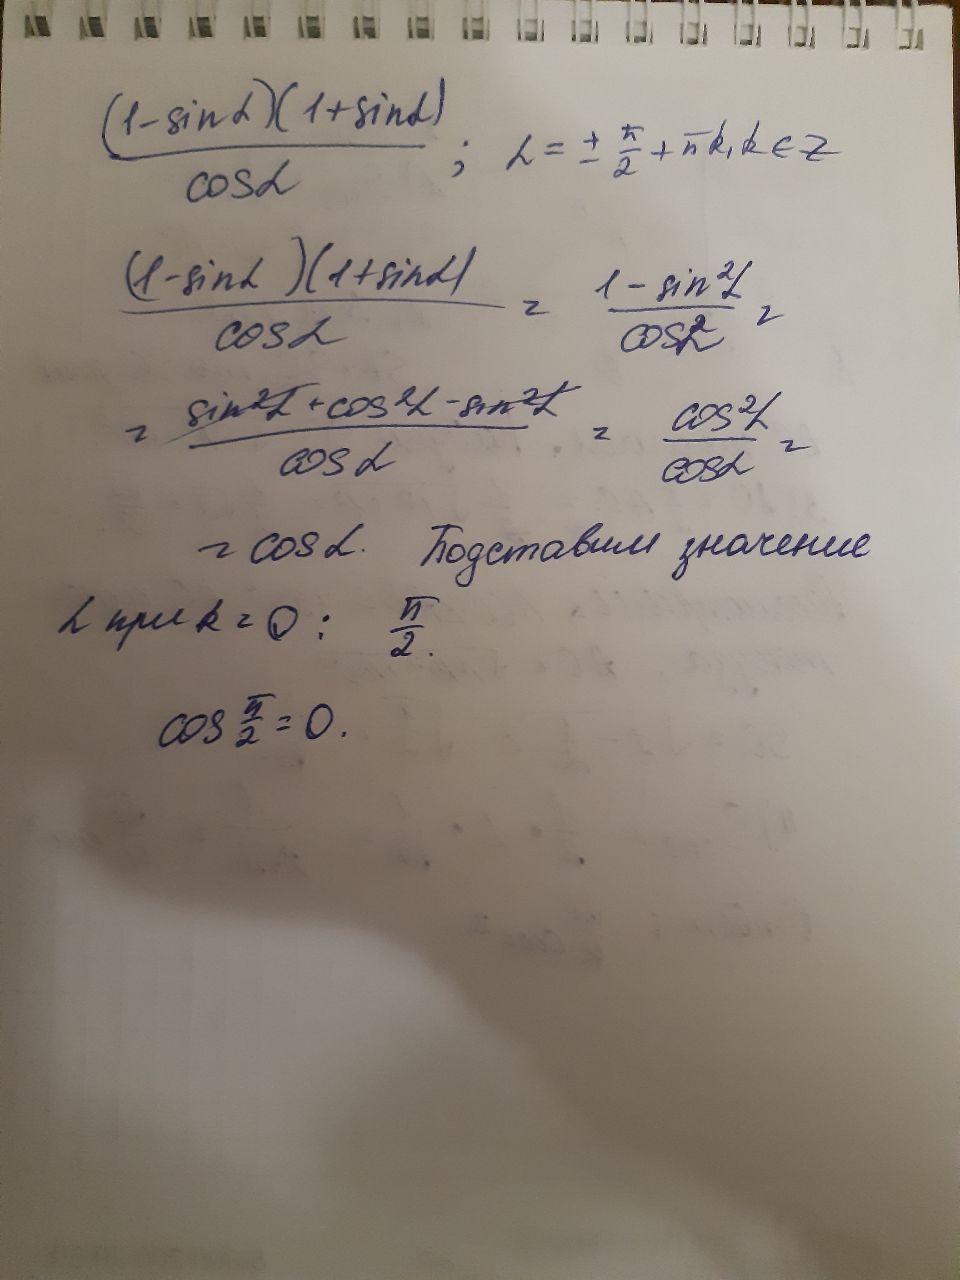 (1-sinα)(1+sinα)/cosα ; α = ± π/2 + πk, k ∈ Z
(1-sinα)(1+sinα)/cosα = 1 - sin²α/cosα =
= sin²α + cos²α - sin²α/cosα = cos²α/cosα =
= cosα. Подставим значение
α при k = 0 : π/2.
cos π/2 = 0.